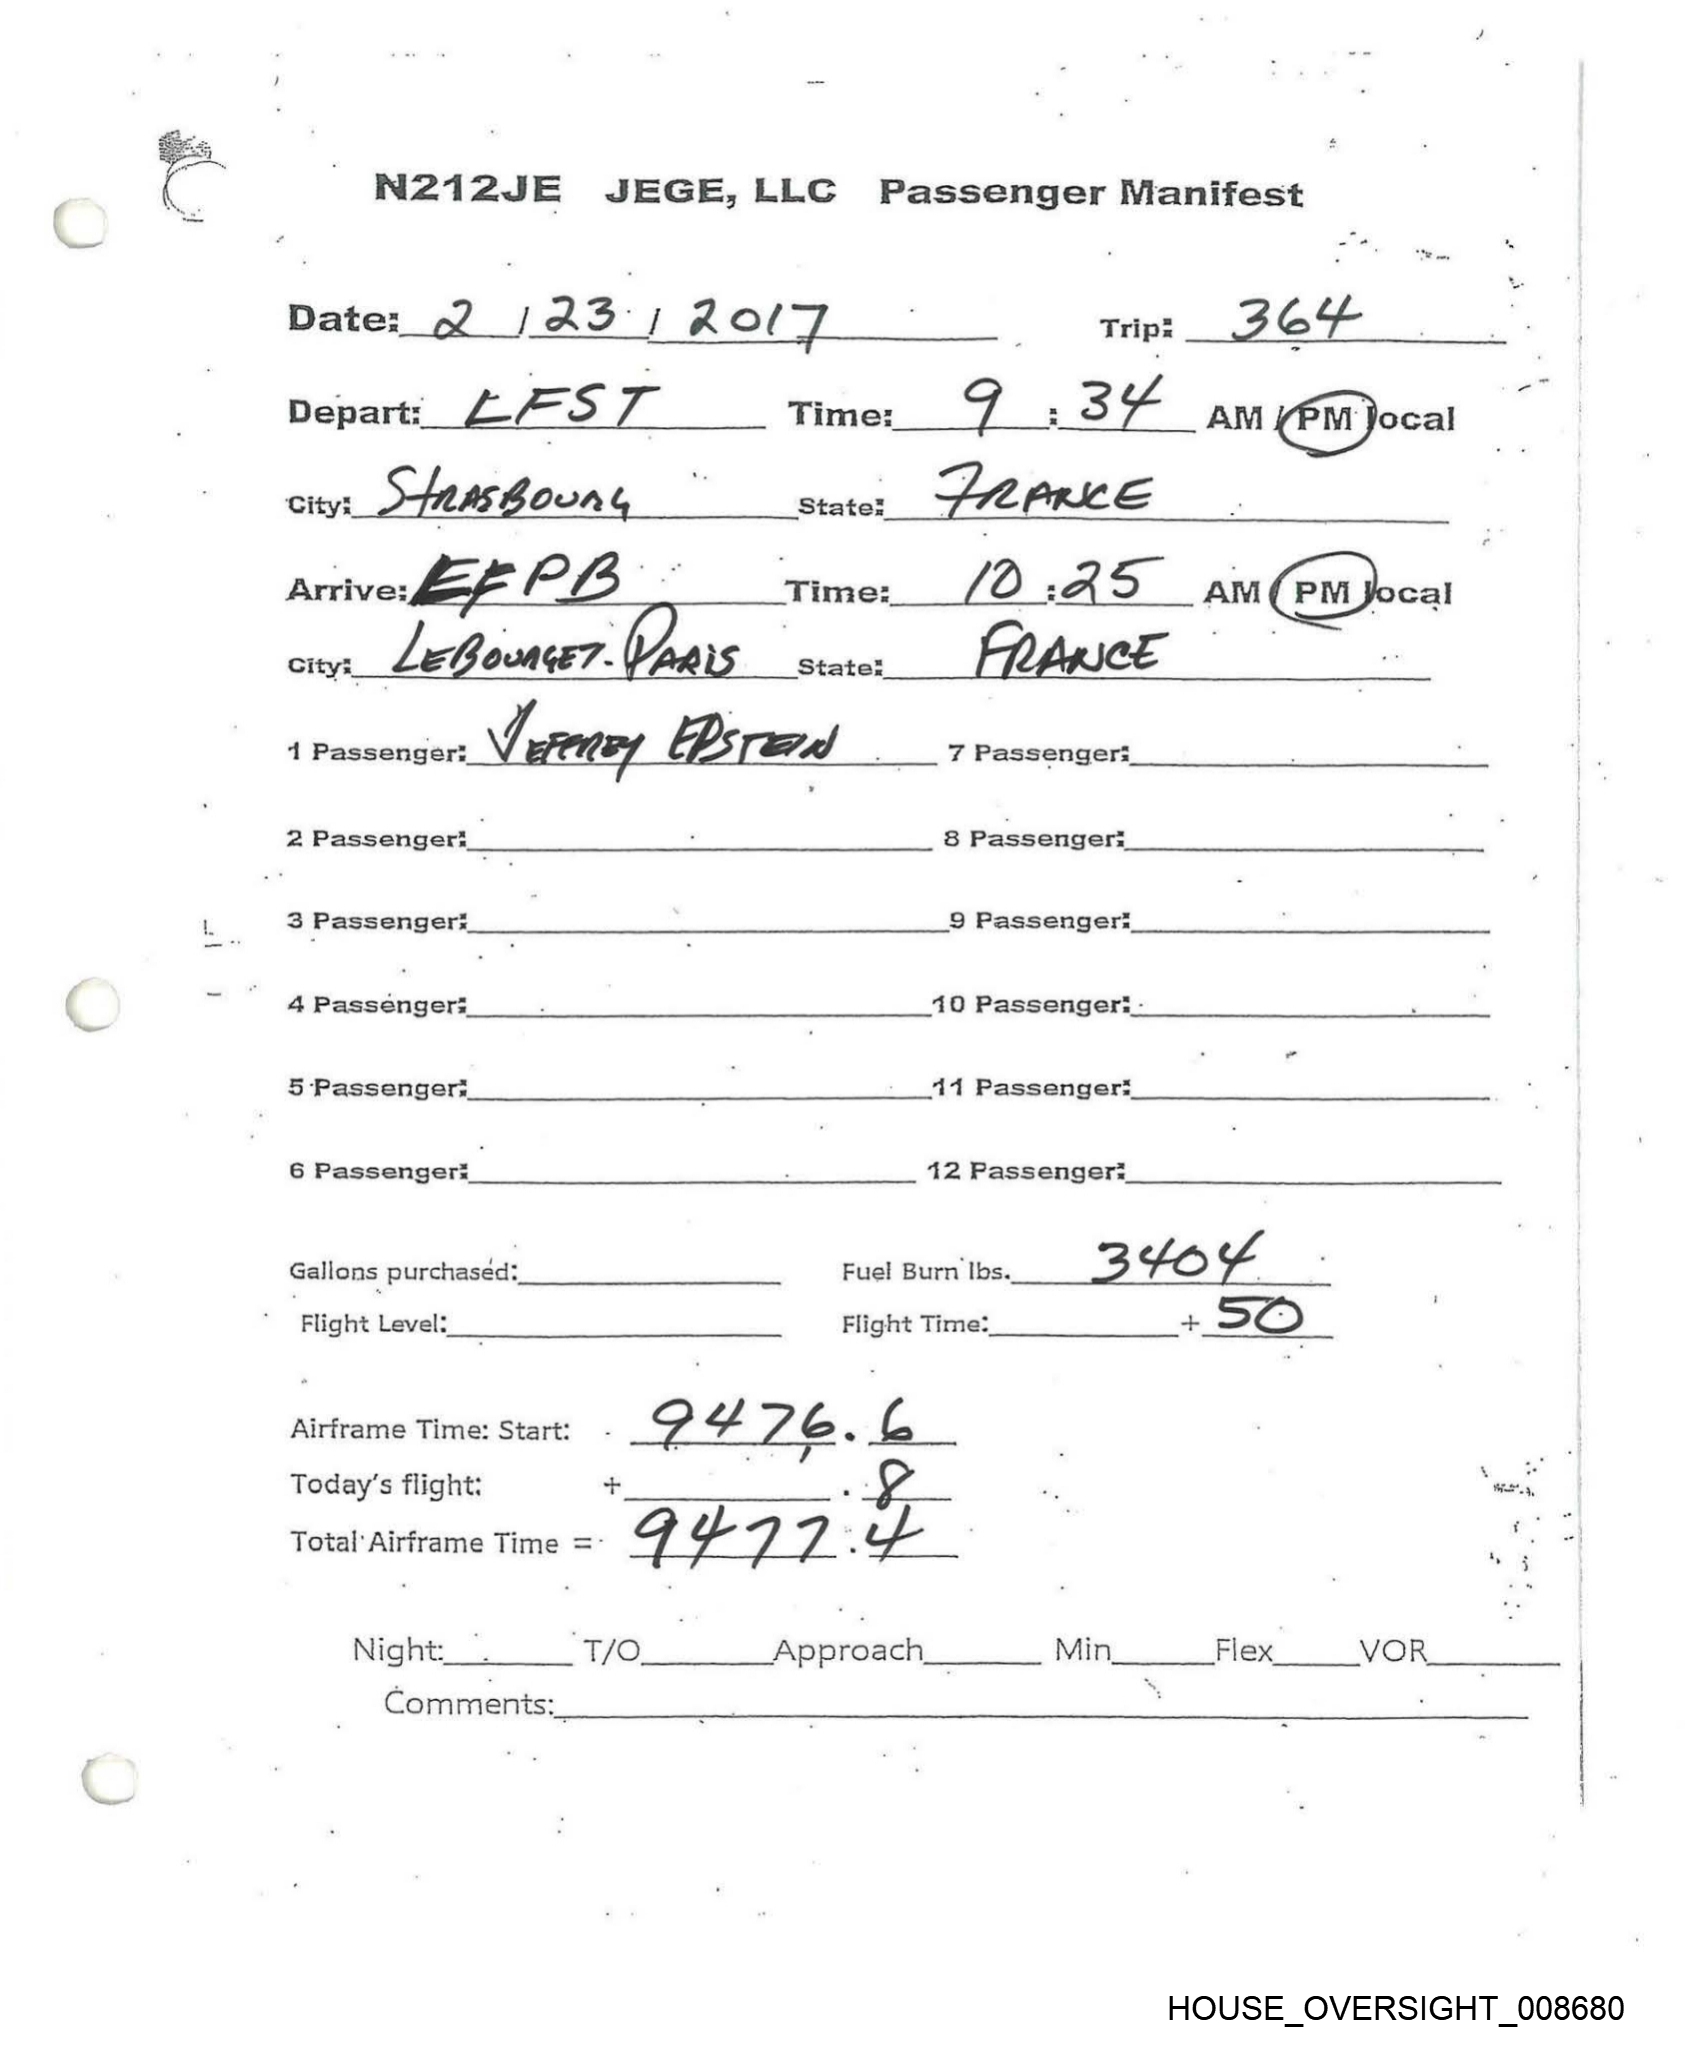 N212JE JEGE, LLC Passenger Manifest
Date: 2 / 23 / 2017 Trip: 364
Depart: LFST Time: 9 : 34 AM / PM local
City: STRASBOURG State: FRANCE
Arrive: EFPB Time: 10 : 25 AM / PM local
City: LEBOURGET-PARIS State: FRANCE
1 Passenger: JEFFREY EPSTEIN 7 Passenger:
2 Passenger: 8 Passenger:
3 Passenger: 9 Passenger:
4 Passenger: 10 Passenger:
5 Passenger: 11 Passenger:
6 Passenger: 12 Passenger:
Gallons purchased: Fuel Burn lbs. 3404
Flight Level: Flight Time: + 50
Airframe Time: Start: 9476 . 6
Today's flight: + . 8
Total Airframe Time = 9477 . 4
Night: T/O Approach Min Flex VOR
Comments:
HOUSE_OVERSIGHT_008680